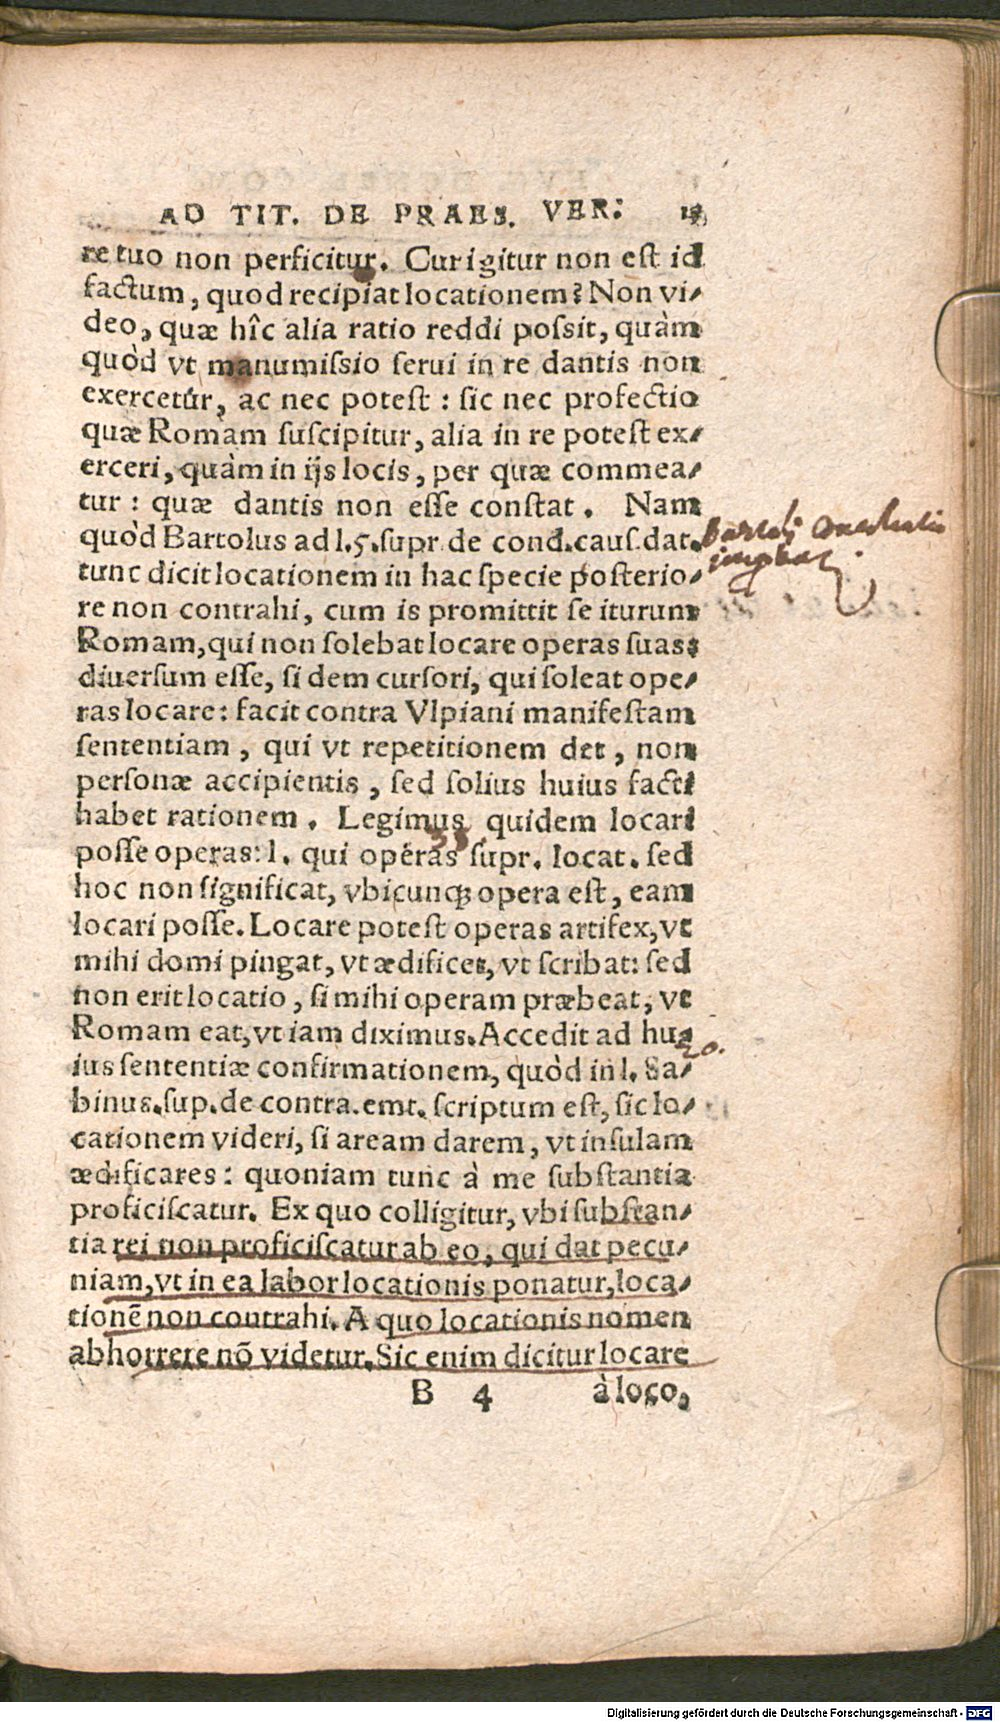 AD TIT. DE PRAES. VER.
re tuo non perficitur. Cur igitur non est id
factum, quod recipiat locationem? Non vi-
deo, quæ hîc alia ratio reddi possit, quàm
quòd vt manumissio serui in re dantis non
exercetur, ac nec potest: sic nec profectio
quæ Romam suscipitur, alia in re potest ex-
erceri, quàm in ijs locis, per quæ commea-
tur: quæ dantis non esse constat. Nam
quòd Bartolus ad l. 5. supr. de cond. caus. dat.
tunc dicit locationem in hac specie posterio-
re non contrahi, cum is promittit se iturum
Romam, qui non solebat locare operas suas:
diuersum esse, si dem cursori, qui soleat ope-
ras locare: facit contra Vlpiani manifestam
sententiam, qui vt repetitionem det, non
personæ accipientis, sed solius huius facti
habet rationem. Legimus quidem locari
38
posse operas: l. qui operas supr. locat. sed
hoc non significat, vbicunq; opera est, eam
locari posse. Locare potest operas artifex, vt
mihi domi pingat, vt ædificet, vt scribat: sed
non erit locatio, si mihi operam præbeat, vt
Romam eat, vt iam diximus. Accedit ad hu-
20.
ius sententiæ confirmationem, quòd in l. Sa-
binus. sup. de contra. emt. scriptum est, sic lo-
cationem videri, si aream darem, vt insulam
ædificares: quoniam tunc à me substantia
proficiscatur. Ex quo colligitur, vbi substan-
tia rei non proficiscatur ab eo, qui dat pecu-
niam, vt in ea labor locationis ponatur, loca-
tionē non contrahi. A quo locationis nomen
abhorrere nō videtur. Sic enim dicitur locare
B 4 à loco,
Digitalisierung gefördert durch die Deutsche Forschungsgemeinschaft - DFG